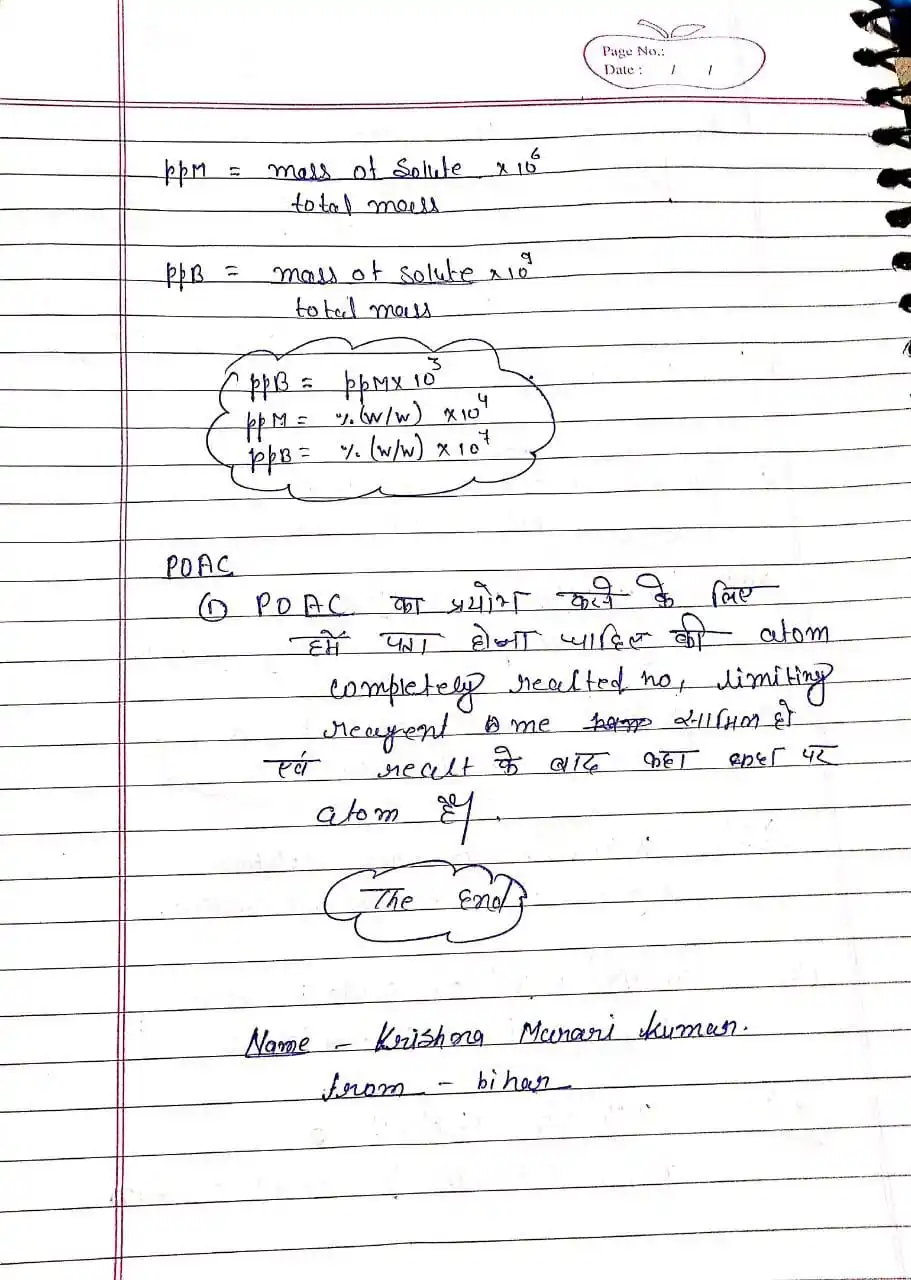 Page No.:
Date : / /
ppM = mass of Solute × 10⁶
total mass
ppB = mass of solute × 10⁹
total mass
ppB = ppM × 10³
ppM = %(w/w) × 10⁴
ppB = %(w/w) × 10⁷
POAC
① POAC का प्रयोग करने के लिए
हमें पता होना चाहिए की atom
completely reacted हो, limiting
reagent me सामिल हो
एवं react के बाद कहा कहा पर
atom है।
The End
Name - Krishna Murari kumar.
from - bihar